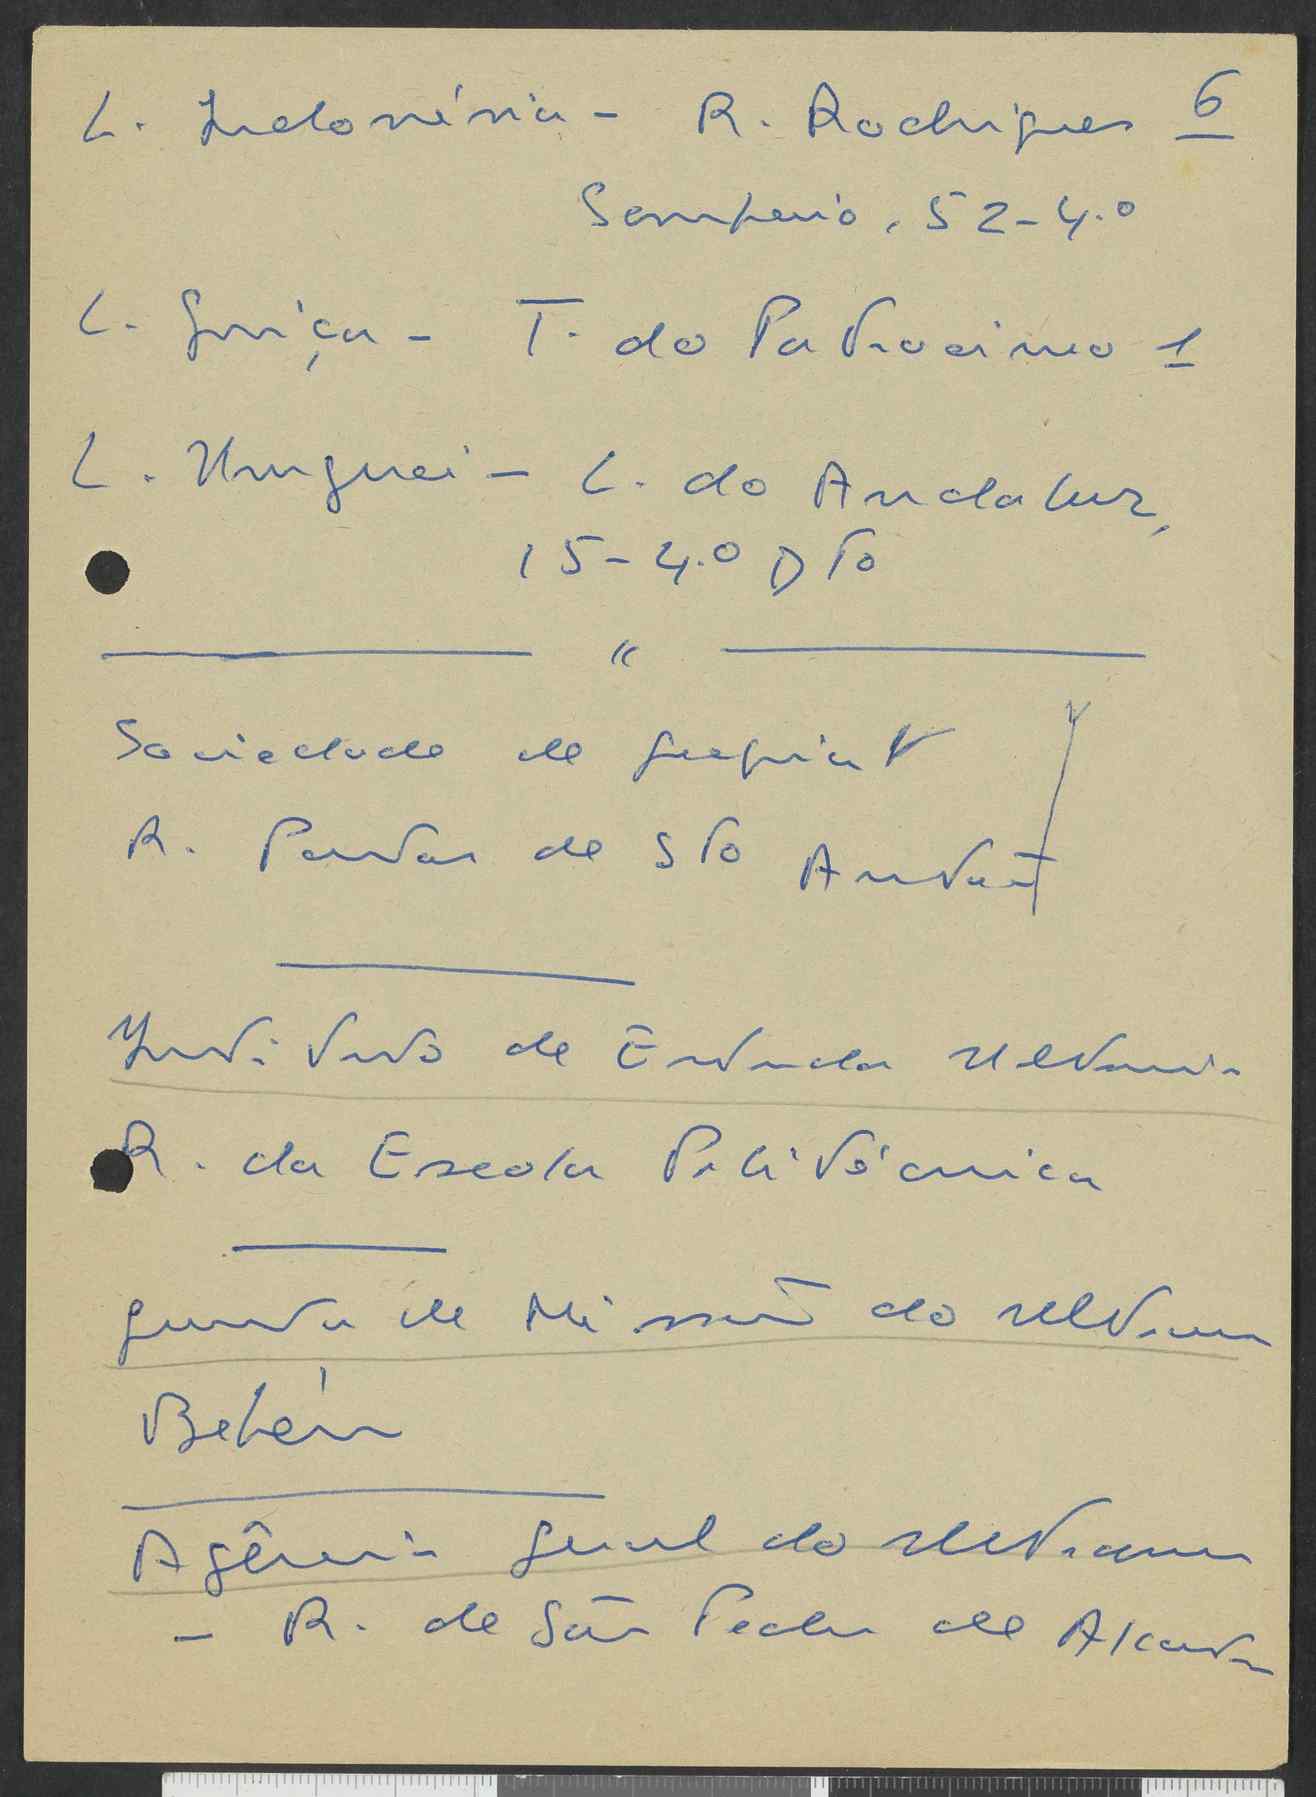 L. Indonésia - R. Rodrigues 6
Sampaio, 52-4.º
L. Suiça - T. do Patrocinio 1
L. Uruguai - L. do Andaluz,
15-4.º Dto
"
Sociedade de Geografia
R. Portas de Sto Antão
Instituto de Estudos Ultramar
R. da Escola Politécnica
Junta de Missões do Ultramar
Belém
Agência Geral do Ultramar
- R. de São Pedro de Alcantara